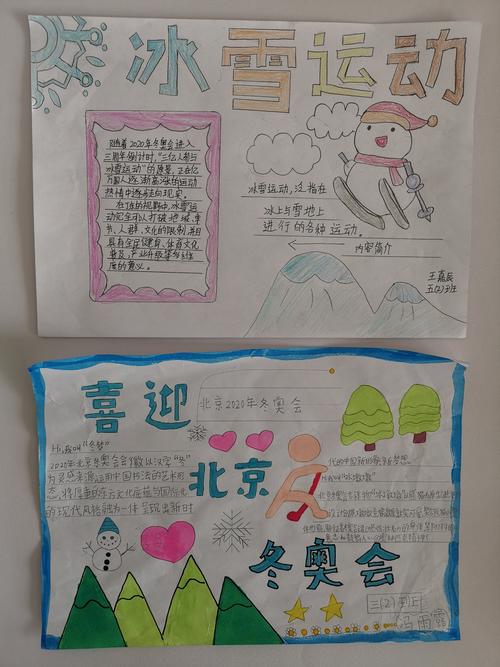 冰雪运动
随着2020年冬奥会进入
三周年倒计时,"三亿人参与
冰雪运动"的愿景,正在亿
万国人逐渐高涨的运动
热情中逐步走向现实。
在广泛的视野中,冰雪运
动完全可以打破地域、季
节、人群、文化的限制,并且
具有全民健身、体育文化
普及、产业升级等多维
度的意义。
冰雪运动,泛指在
冰上与雪地上
进行的各种运动。
内容简介
王嘉辰
五(2)班
喜迎
北京2020年冬奥会
Hi,我叫"冬梦"
2020年北京冬奥会会徽以汉字"冬"
为灵感来源,运用中国书法的艺术形
态,将厚重的东方文化底蕴与国际化
的现代风格融为一体,呈现出新时
北京
代的中国新形象新梦想。
冬奥会
三(2)
冯雨露